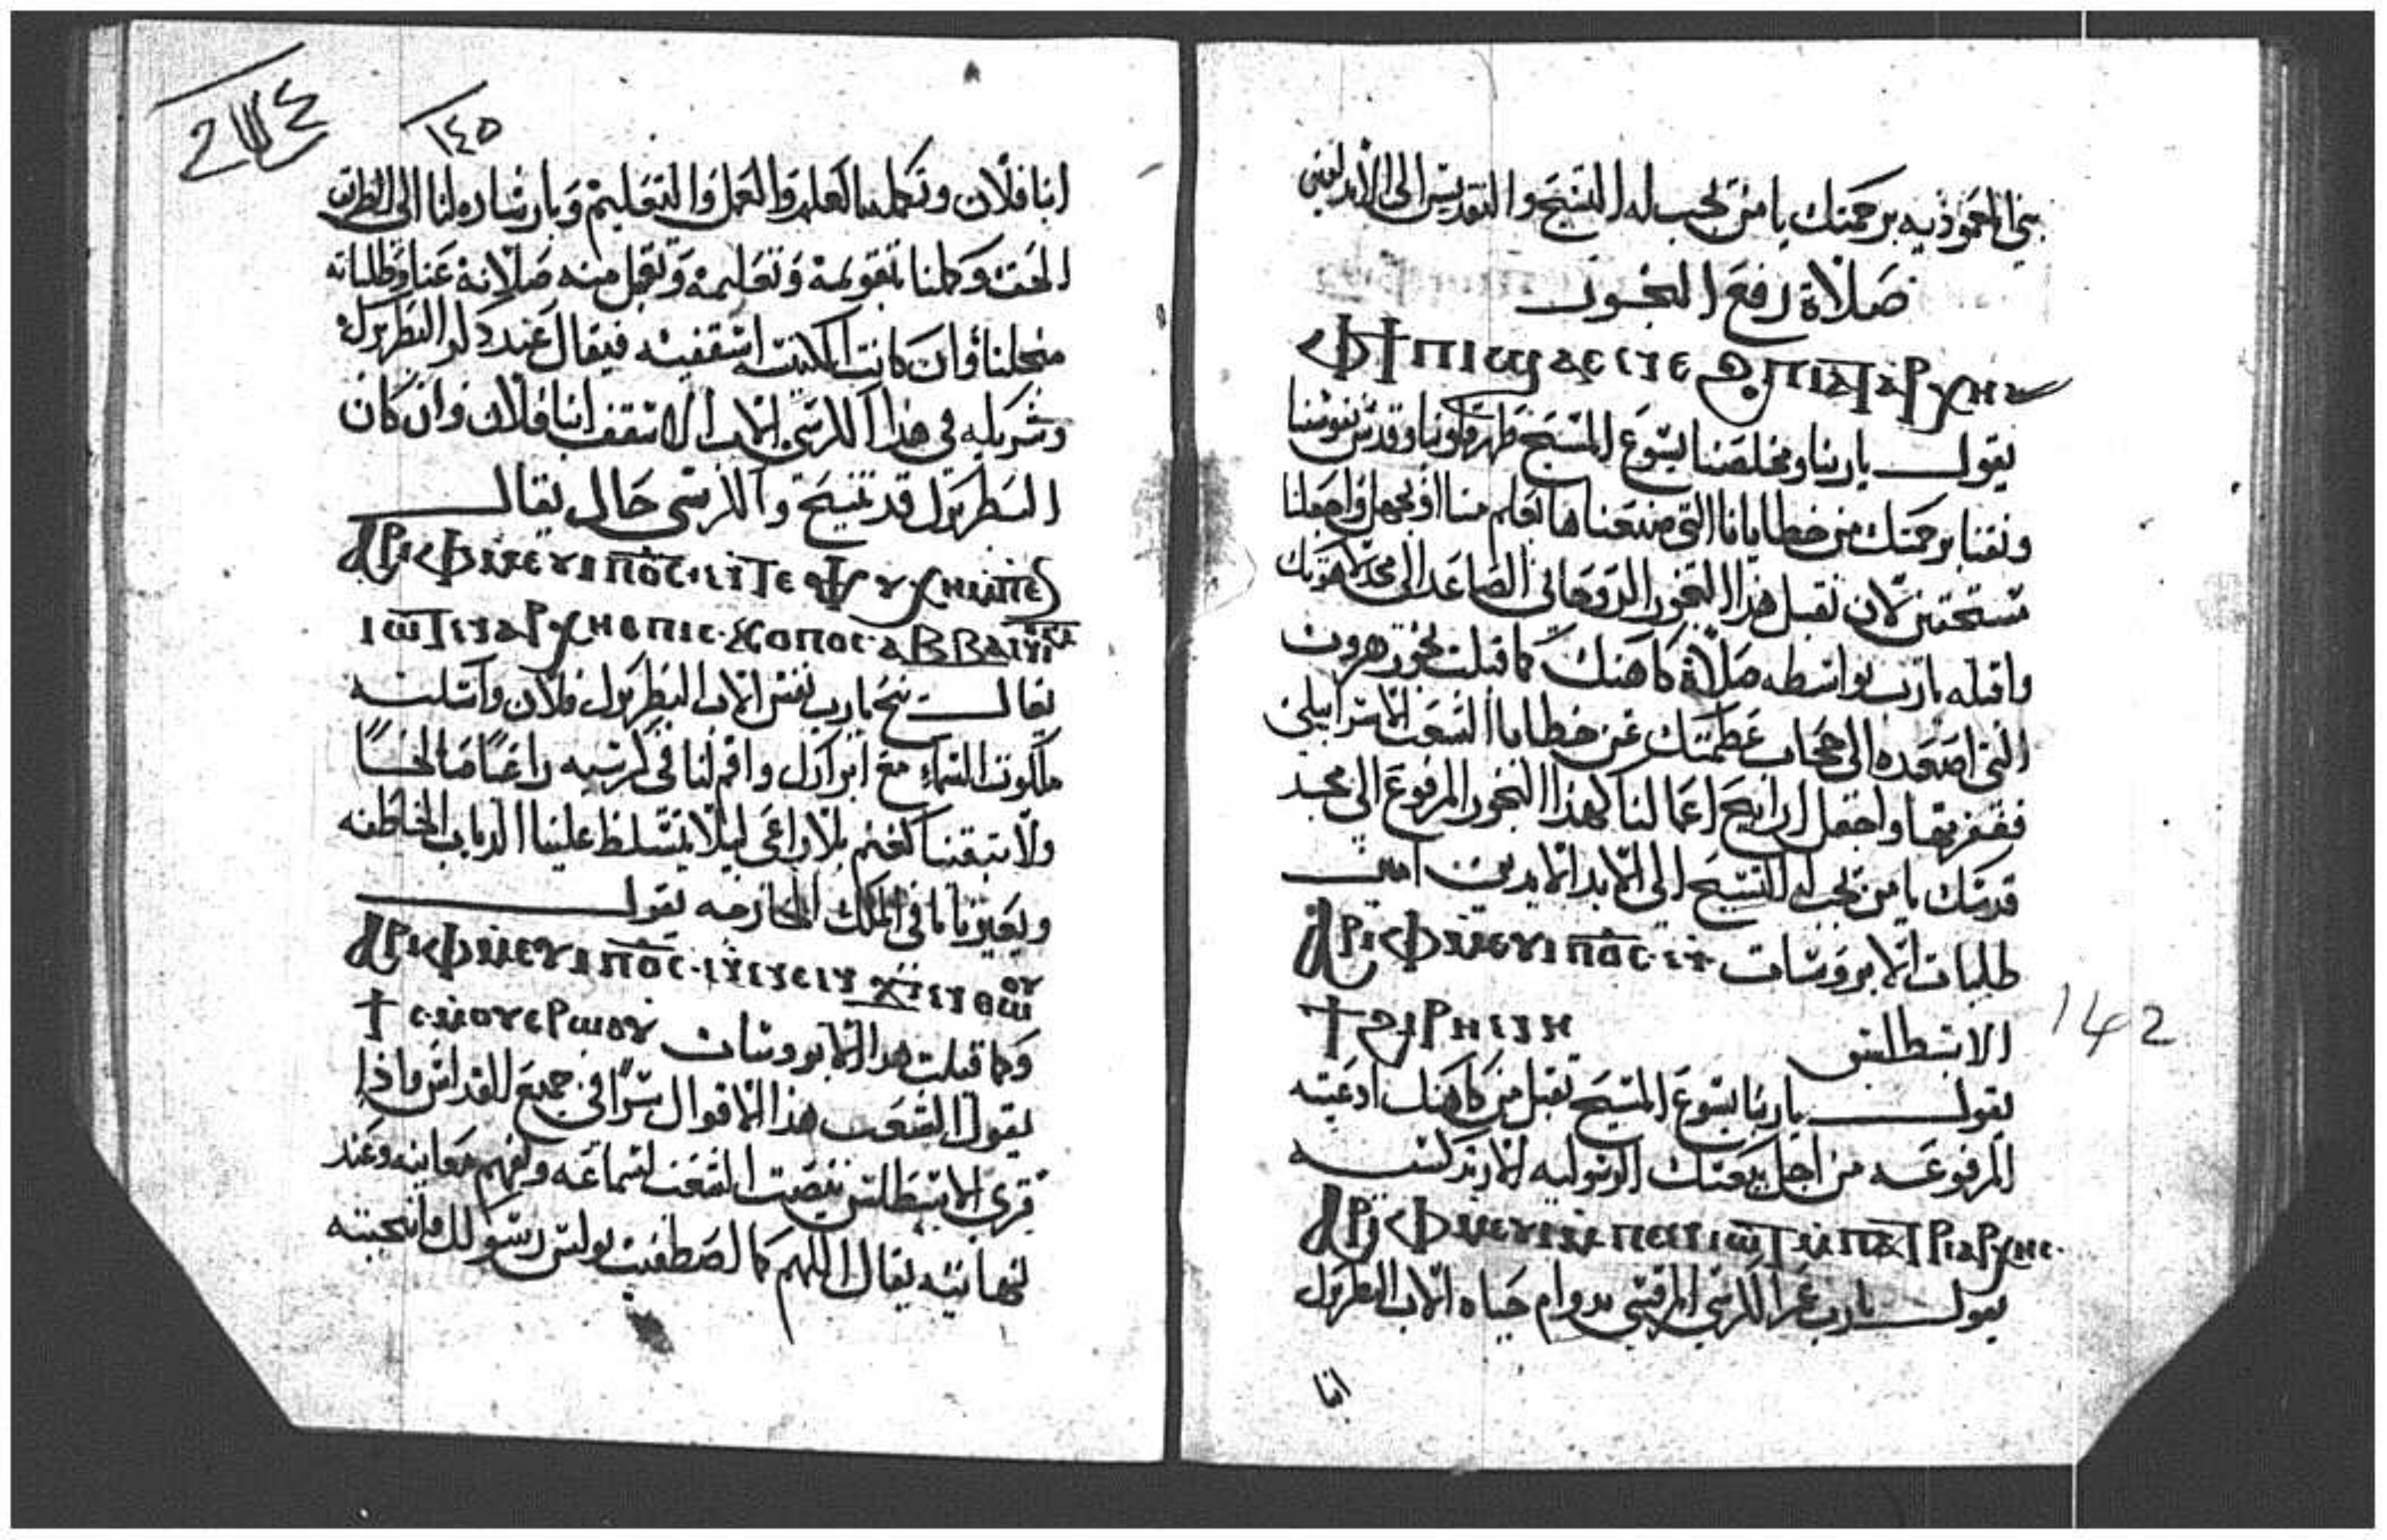 بني المعموديه برحمتك يا من يجب له التسبيح والتقديس الى الابد امين
صلاة رفع البخور
ⲫϯ ⲡⲓϣⲁⲉⲛⲉϩ ⲡⲓⲁⲧⲁⲣⲭⲏ
يقول يا ربنا ومخلصنا يسوع المسيح طهر قلوبنا وقدس نفوسنا
ونقنا برحمتك من خطايانا التي صنعناها بعلم منا او بجهل واجعلنا
مستحقين لان نقبل هذا البخور الروحاني الصاعد الى مجد لاهوتك
واقبله يا رب بواسطه صلاة كاهنك كما قبلت بخور هرون
التي اصعده الى حجاب عظمتك عن خطايا الشعب الاسراييلي
فغفرتها واجعل ارايح اعمالنا كهذا البخور المرفوع الى مجد
قدسك يا من يجب له التسبيح الى الابد الابدين امين
طلبات الابروسات ⲁⲣⲓⲫⲙⲉⲩⲓ ⲡⲟⲥ ⲛ
الابسطالس ϯϩⲓⲣⲏⲛⲏ
142
يقول يا ربنا يسوع المسيح تقبل من كاهنك ادعيته
المرفوعه من اجل بيعتك الرسوليه الارتدكسيه
ⲁⲣⲓⲫⲙⲉⲩⲓ ⲙⲡⲉⲛⲓⲱⲧ ⲙⲡⲁⲧⲣⲓⲁⲣⲭⲏⲥ
يقول يا رب عمر الكرسي المرقسي بدوام حياه الاب البطريرك
انبا
١٤٥
انبا فلان وتكملنا العلم والعمل والتعليم وبارشاده لنا الى الطرق
الحق وكلنا بتقويمه وتعليمه وتقبل منه صلاته عنا وطلباته
من اجلنا وان كانت الكنيسه اسقفيه فيقال عند ذكر البطريرك
وشريكه في هذا الكرسي الاب الاسقف انبا فلان وان كان
البطريرك قد تنيح والكرسي خال يقال
ⲁⲣⲓⲫⲙⲉⲩⲓ ⲡⲟⲥ ⲛⲧⲉ ⲯⲩⲭⲏ ⲙⲡⲉ
ⲓⲱⲧ ⲛⲁⲣⲭⲏⲉⲡⲓⲥⲕⲟⲡⲟⲥ ⲁⲃⲃⲁ
يقال نيح يا رب نفس الاب البطريرك فلان واسكنه
ملكوت السماء مع ابرارك واقم لنا في كرسيه راعيا صالحا
ولا تبقنا كغنم بلا راعي ليلا يتسلط علينا الدياب الخاطفه
يقول
ⲁⲣⲓⲫⲙⲉⲩⲓ ⲡⲟⲥ ⲛⲛⲉⲛϫⲓⲛⲑⲱⲟⲩ
وكما قبلت هذا الابروسات ϯ ⲥⲙⲟⲩ ⲉⲣⲱⲟⲩ
يقول الشعب هذا الاقوال سرا في جميع القداس فاذا
قري الابسطالس ينصت الشعب لسماعه وتفهم معانيه وعند
نهايته يقال اللهم كما اصطفيت بولس رسولك وانتخبته